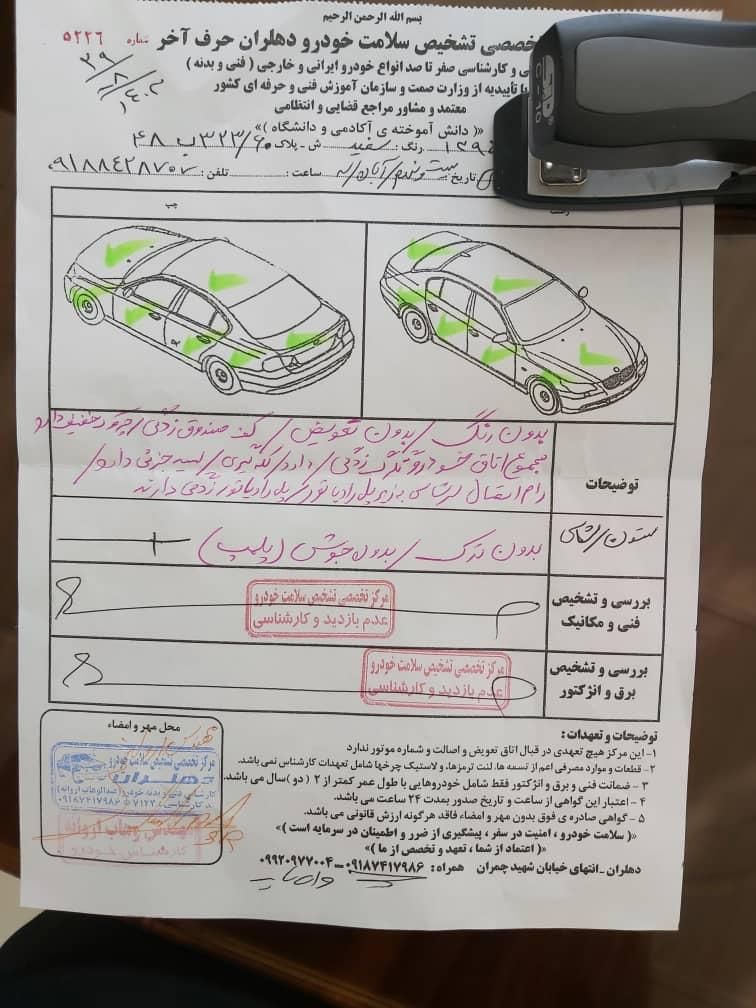 بسم الله الرحمن الرحیم
تخصصی تشخیص سلامت خودرو دهلران حرف آخر
شماره ۵۲۲۶
ی و کارشناسی صفر تا صد انواع خودرو ایرانی و خارجی ( فنی و بدنه )
با تاییدیه از وزارت صمت و سازمان آموزش فنی و حرفه ای کشور
معتمد و مشاور مراجع قضایی و انتظامی
«( دانش آموخته ی آکادمی و دانشگاه )»
رنگ: سفید ش - پلاک: ۶۰/ ۳۲۳ ب ۴۸
تاریخ: ساعت: تلفن: ۰۹۱۸۸۴۲۸۷۰۷
چپ
توضیحات
بدون رنگ / بدون تعویض / کف صندوق زدگی
ستون / شاسی
بدون ترک / بدون جوش (پلمپ)
بررسی و تشخیص
فنی و مکانیک
مرکز تخصصی تشخیص سلامت خودرو
عدم بازدید و کارشناسی
بررسی و تشخیص
برق و انژکتور
مرکز تخصصی تشخیص سلامت خودرو
عدم بازدید و کارشناسی
توضیحات و تعهدات :
۱- این مرکز هیچ تعهدی در قبال اتاق تعویض و اصالت و شماره موتور ندارد
۲- قطعات و موارد مصرفی اعم از تسمه ها، لنت ترمزها، و لاستیک چرخها شامل تعهدات کارشناس نمی باشد.
۳ - ضمانت فنی و برق و انژکتور فقط شامل خودروهایی با طول عمر کمتر از ۲ ( دو )سال می باشد.
۴ - اعتبار این گواهی از ساعت و تاریخ صدور بمدت ۲۴ ساعت می باشد.
۵ - گواهی صادره ی فوق بدون مهر و امضاء فاقد هرگونه ارزش قانونی می باشد.
«( سلامت خودرو ، امنیت در سفر ، پیشگیری از ضرر و اطمینان در سرمایه است )»
«( اعتماد از شما ، تعهد و تخصص از ما )»
دهلران -انتهای خیابان شهید چمران همراه: ۰۹۱۸۷۴۱۷۹۸۶-۰۹۹۲۰۹۷۷۰۰۴
محل مهر و امضاء
مرکز تخصصی تشخیص سلامت خودرو
دهلران
مهندس وهاب اروانه
کارشناس خودرو